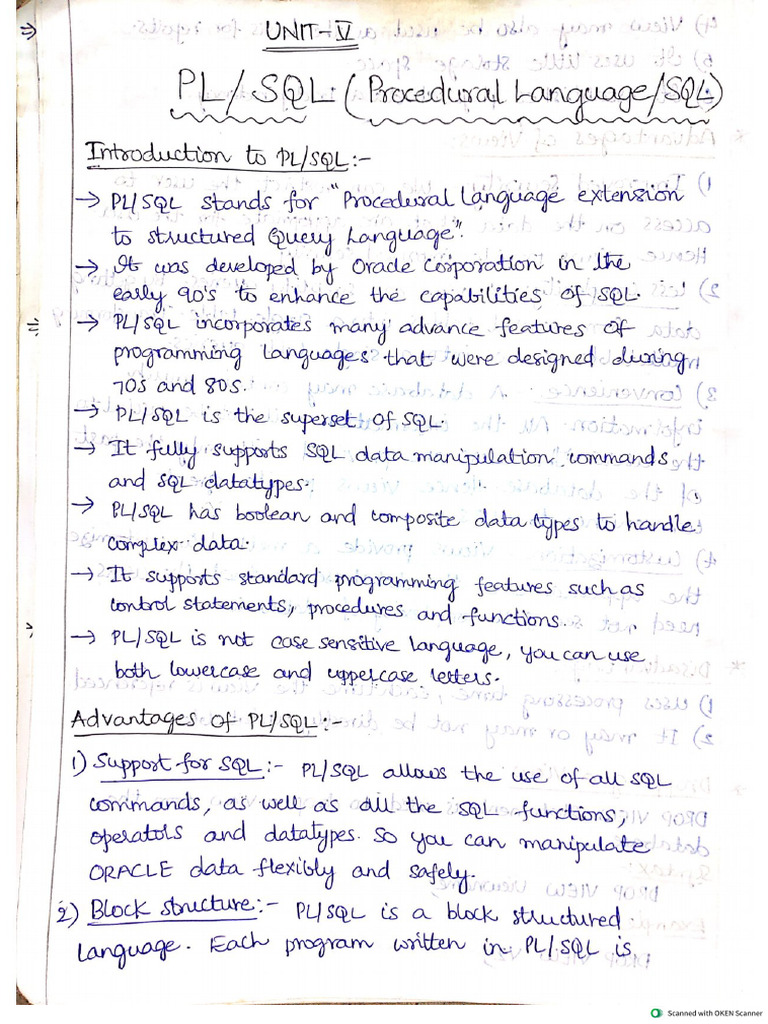 UNIT-V
PL/SQL (Procedural Language/SQL)
Introduction to PL/SQL:-
→ PL/SQL stands for "Procedural Language extension
to structured Query Language".
→ It was developed by Oracle Corporation in the
early 90's to enhance the capabilities of SQL.
→ PL/SQL incorporates many advance features of
programming languages that were designed during
70s and 80s.
→ PL/SQL is the superset of SQL.
→ It fully supports SQL data manipulation commands
and SQL datatypes.
→ PL/SQL has boolean and composite data types to handle
complex data.
→ It supports standard programming features such as
control statements, procedures and functions.
→ PL/SQL is not case sensitive language, you can use
both lowercase and uppercase letters.
Advantages of PL/SQL:-
1) Support for SQL:- PL/SQL allows the use of all SQL
commands, as well as all the SQL functions,
operators and datatypes. So you can manipulate
ORACLE data flexibly and safely.
2) Block structure:- PL/SQL is a block structured
language. Each program written in PL/SQL is
Scanned with OKEN Scanner